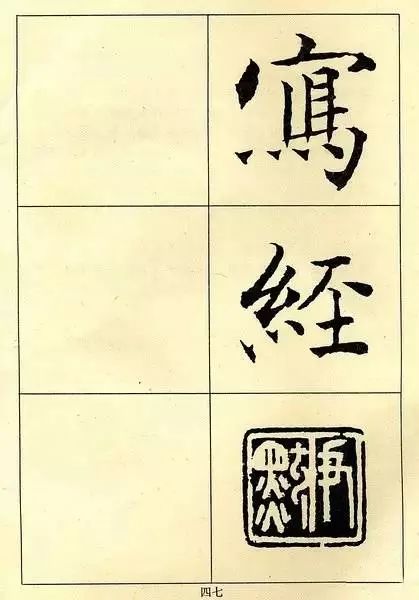 寫經
四七